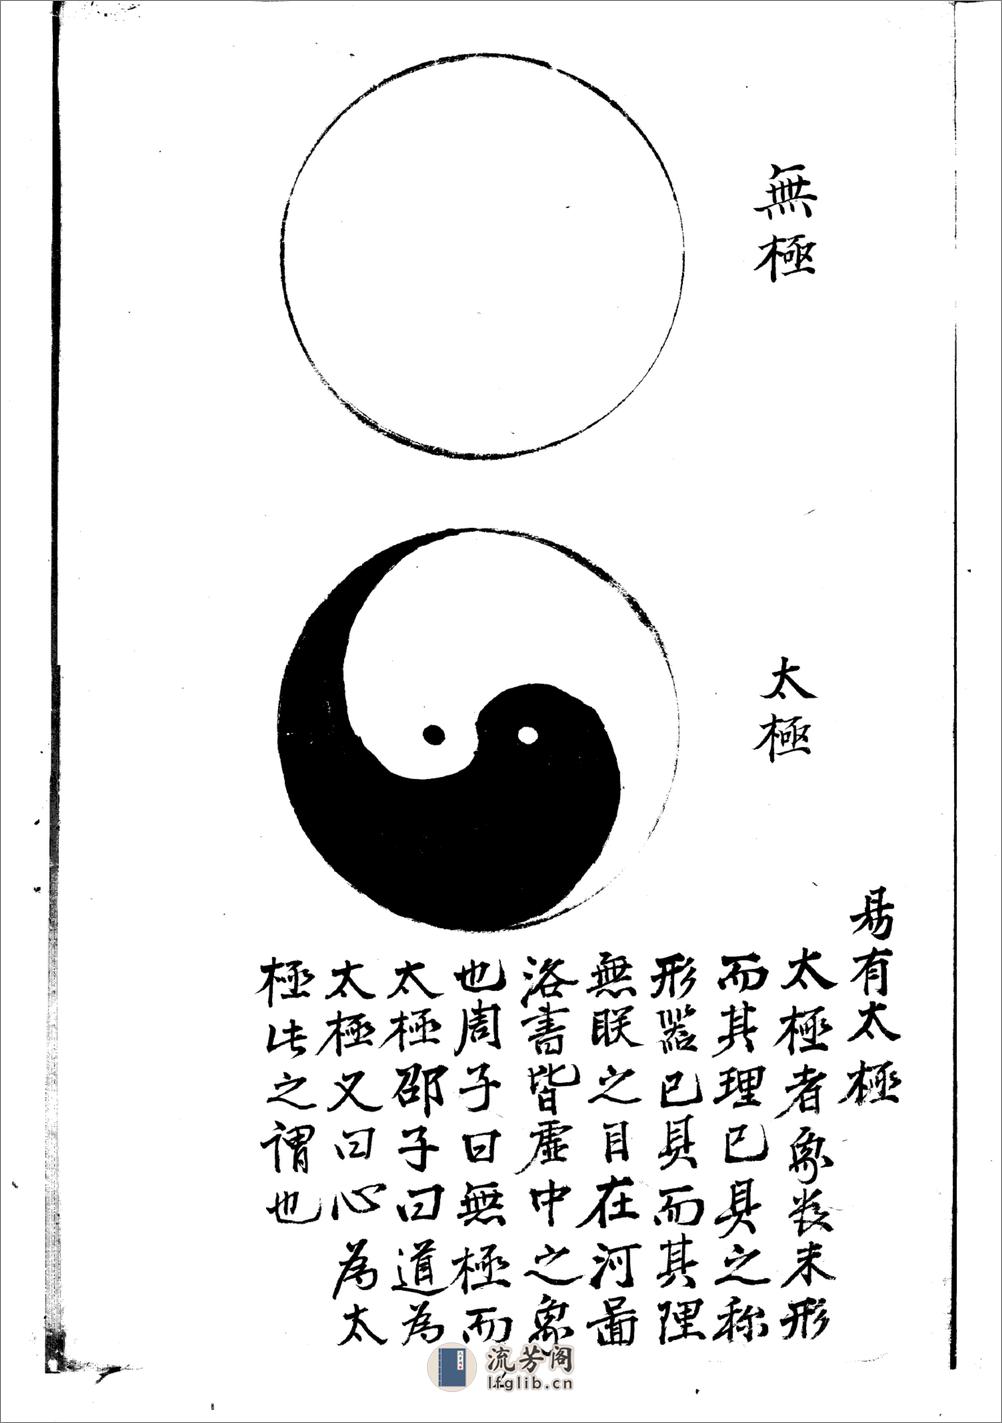 無極
太極
易有太極
太極者象數未形
而其理已具之称
形器已具而其理
無眹之目在河啚
洛書皆虛中之象
也周子曰無極而
太極邵子曰道為
太極又曰心為太
極此之謂也
流芳阁
lfglib.cn